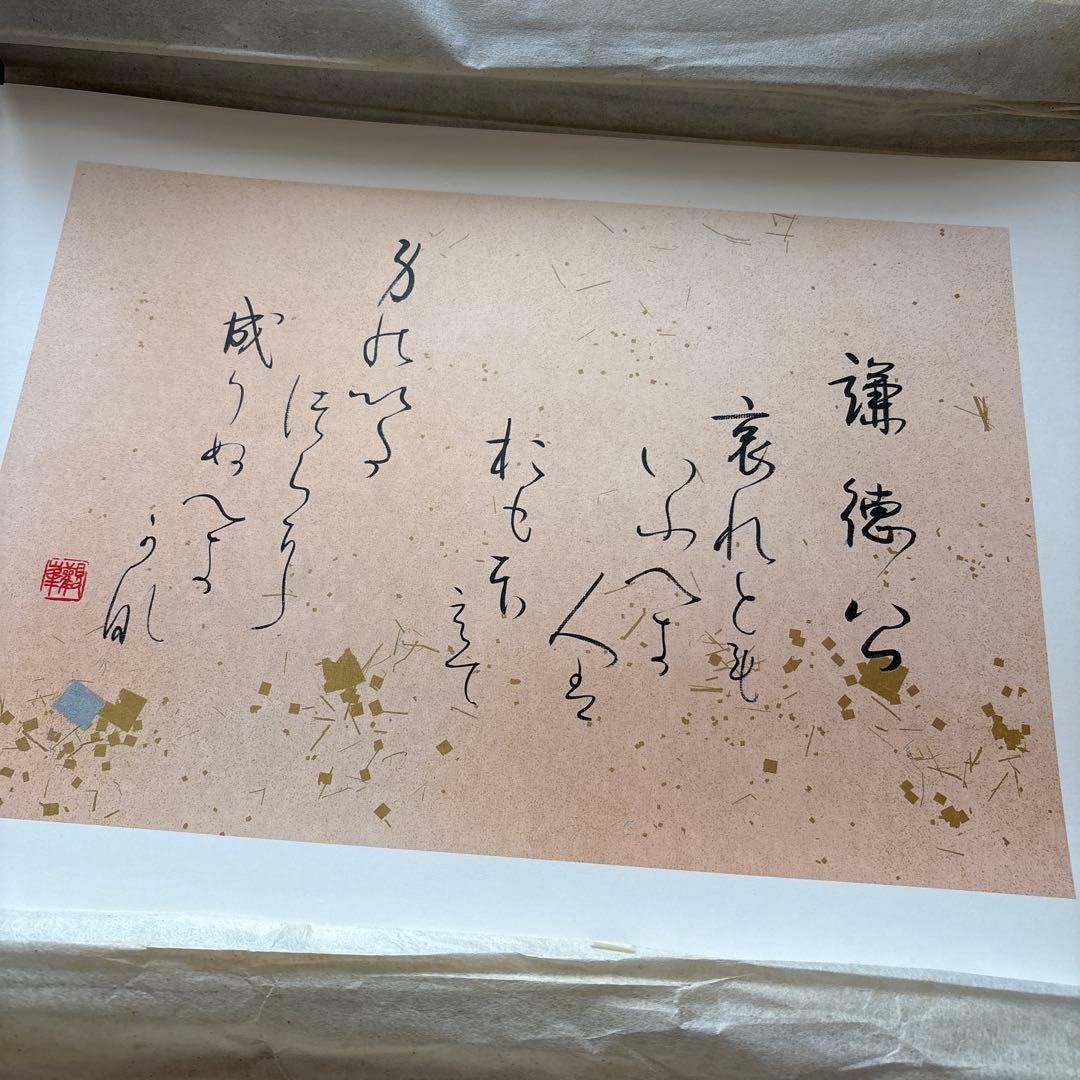 謙徳公
哀れとも
いふへき
人は
おもほ
えて
身のいた
つらに
成りぬへき
かな
觀峯